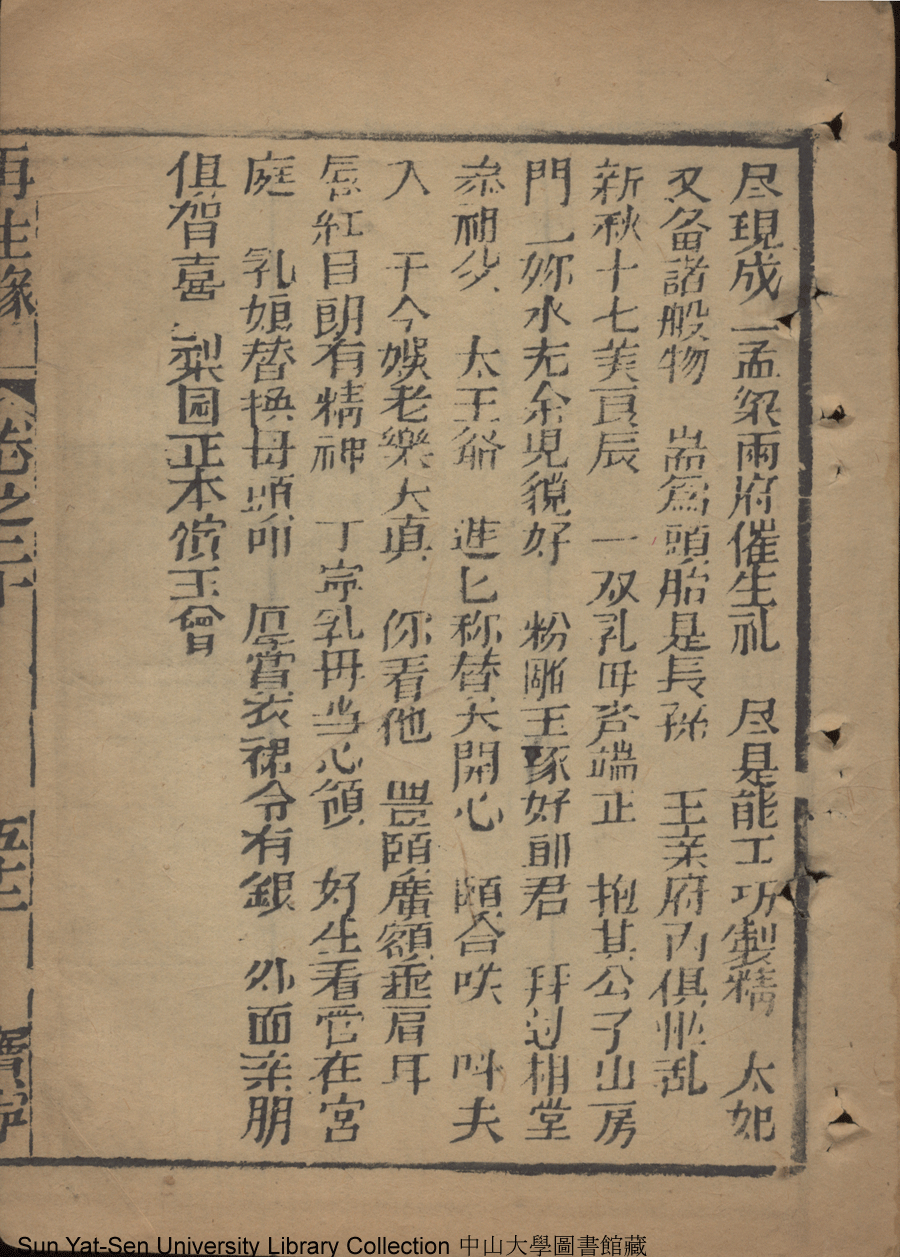 尽現成 孟梁兩府催生礼 尽是能工巧製精 太妃
又备諸般物 耑爲頭胎是長孫 王亲府内俱忙乱
新秋十七美良辰 一双乳毋容端正 抱其公子出房
門 妳水充余児貌好 粉雕玉琢好郎君 拜过相堂
叅祖父 太王爺 進匕称替大開心 頤合咲 呌夫
入 于今娛老樂大真 你看他 豊頤廣額垂肩耳
唇紅目朗有精神 丁寕乳毋当心領 好生看管在宮
庭 乳娘替換毋頭叩 厚賞衣裙令有銀 外面亲朋
俱賀喜 梨园正本宴玉曾
再生緣 卷之二十 五十 寶寕
Sun Yat-Sen University Library Collection 中山大學圖書館藏